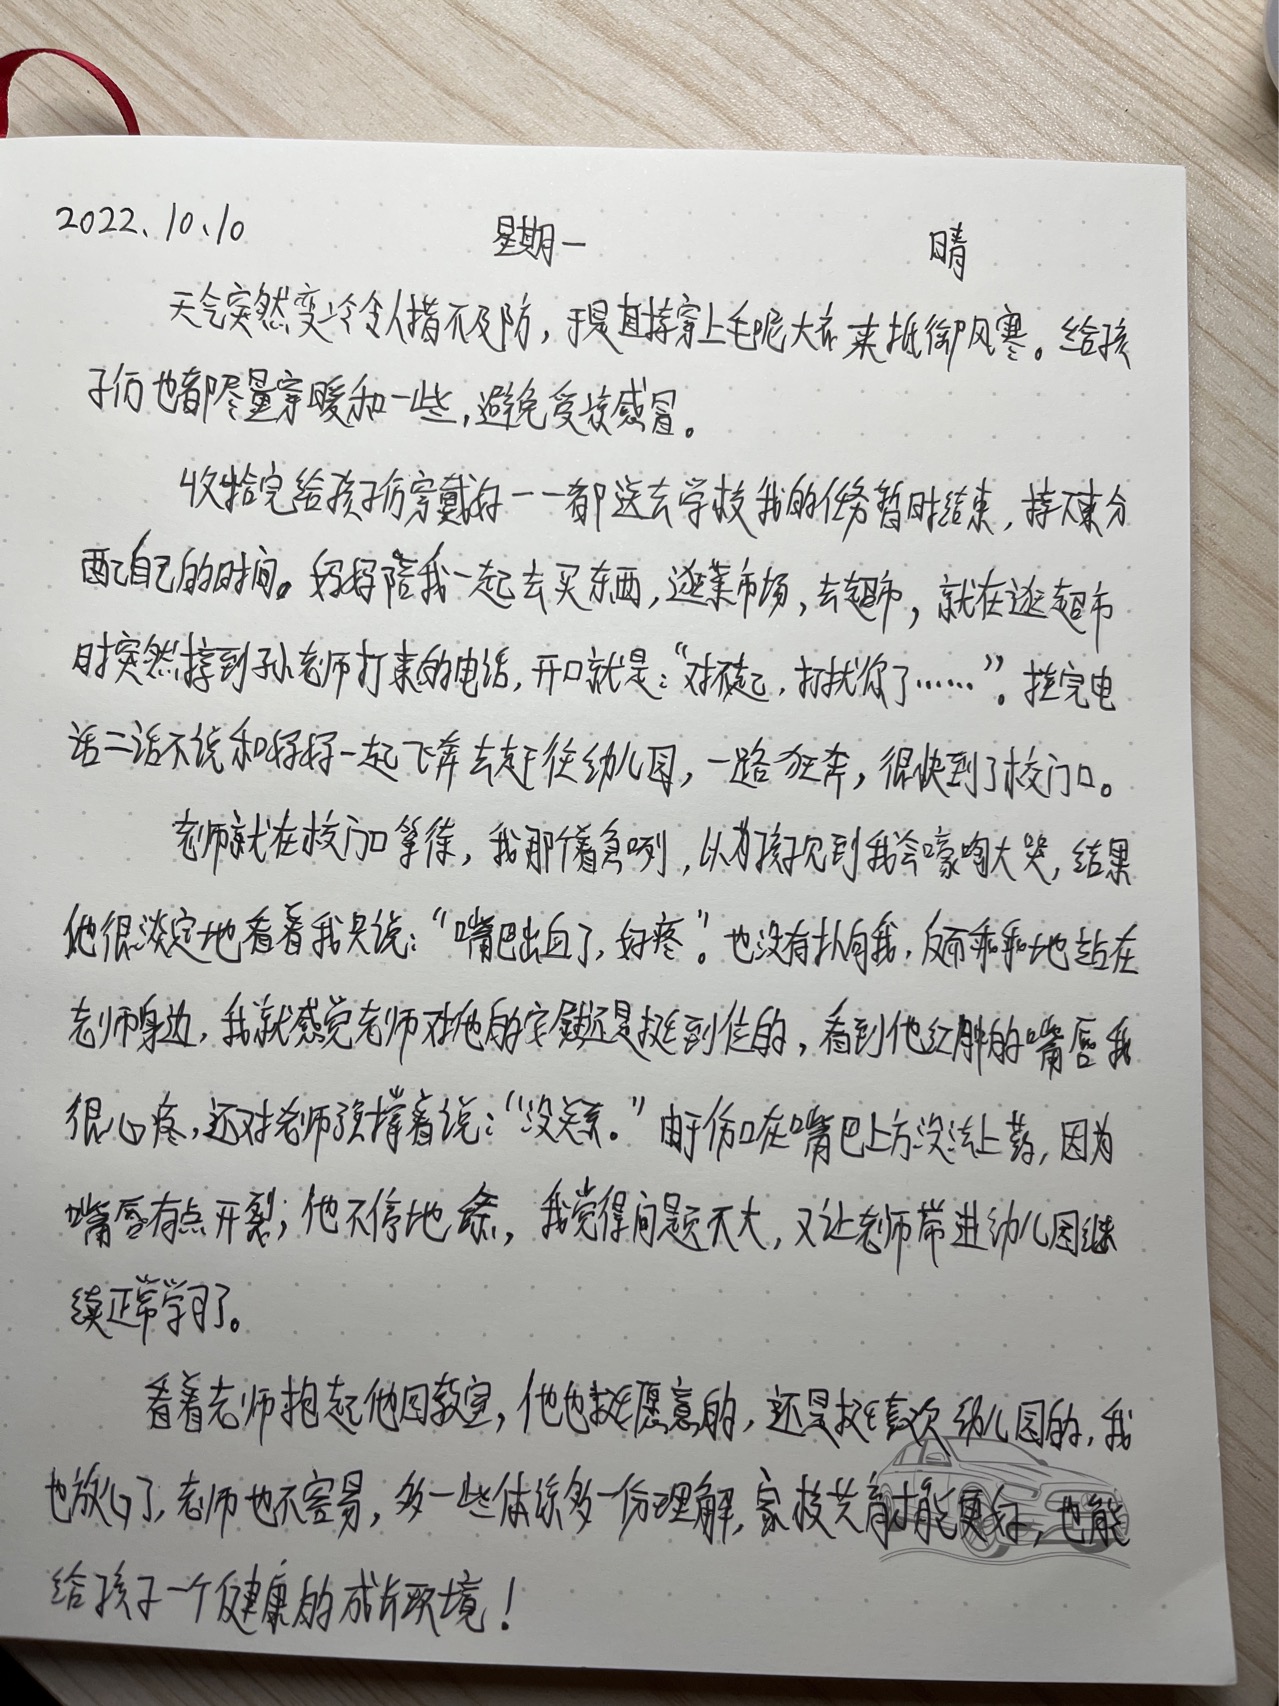 2022、10、10 星期一 晴
天气突然变冷令人措不及防，于是直接穿上毛呢大衣来抵御风寒。给孩
子们也都尽量穿暖和一些，避免受凉感冒。
收拾完给孩子们穿戴好一一都送去学校我的任务暂时结束，接下来分
配自己的时间。好好陪我一起去买东西，逛菜市场，去超市，就在逛超市
时突然接到孙老师打来的电话，开口就是：“对不起，打扰你了……”。挂完电
话二话不说和好好一起飞奔去赶往幼儿园，一路狂奔，很快到了校门口。
老师就在校门口等待，我那个着急咧，以为孩子见到我会嚎啕大哭，结果
他很淡定地看着我只说：“嘴巴出血了，好疼”。也没有扑向我，反而乖乖地站在
老师身边，我就感觉老师对他的安慰还是挺到位的，看到他红肿的嘴唇我
很心疼，还对老师强撑着说：“没关系。”由于伤口在嘴巴上方没法上药，因为
嘴唇有点开裂；他不停地舔，我觉得问题不大，又让老师带进幼儿园继
续正常学习了。
看着老师抱起他回教室，他也挺愿意的，还是挺喜欢幼儿园的，我
也放心了，老师也不容易，多一些体谅多一份理解，家校共育才能更好，也能
给孩子一个健康的成长环境！